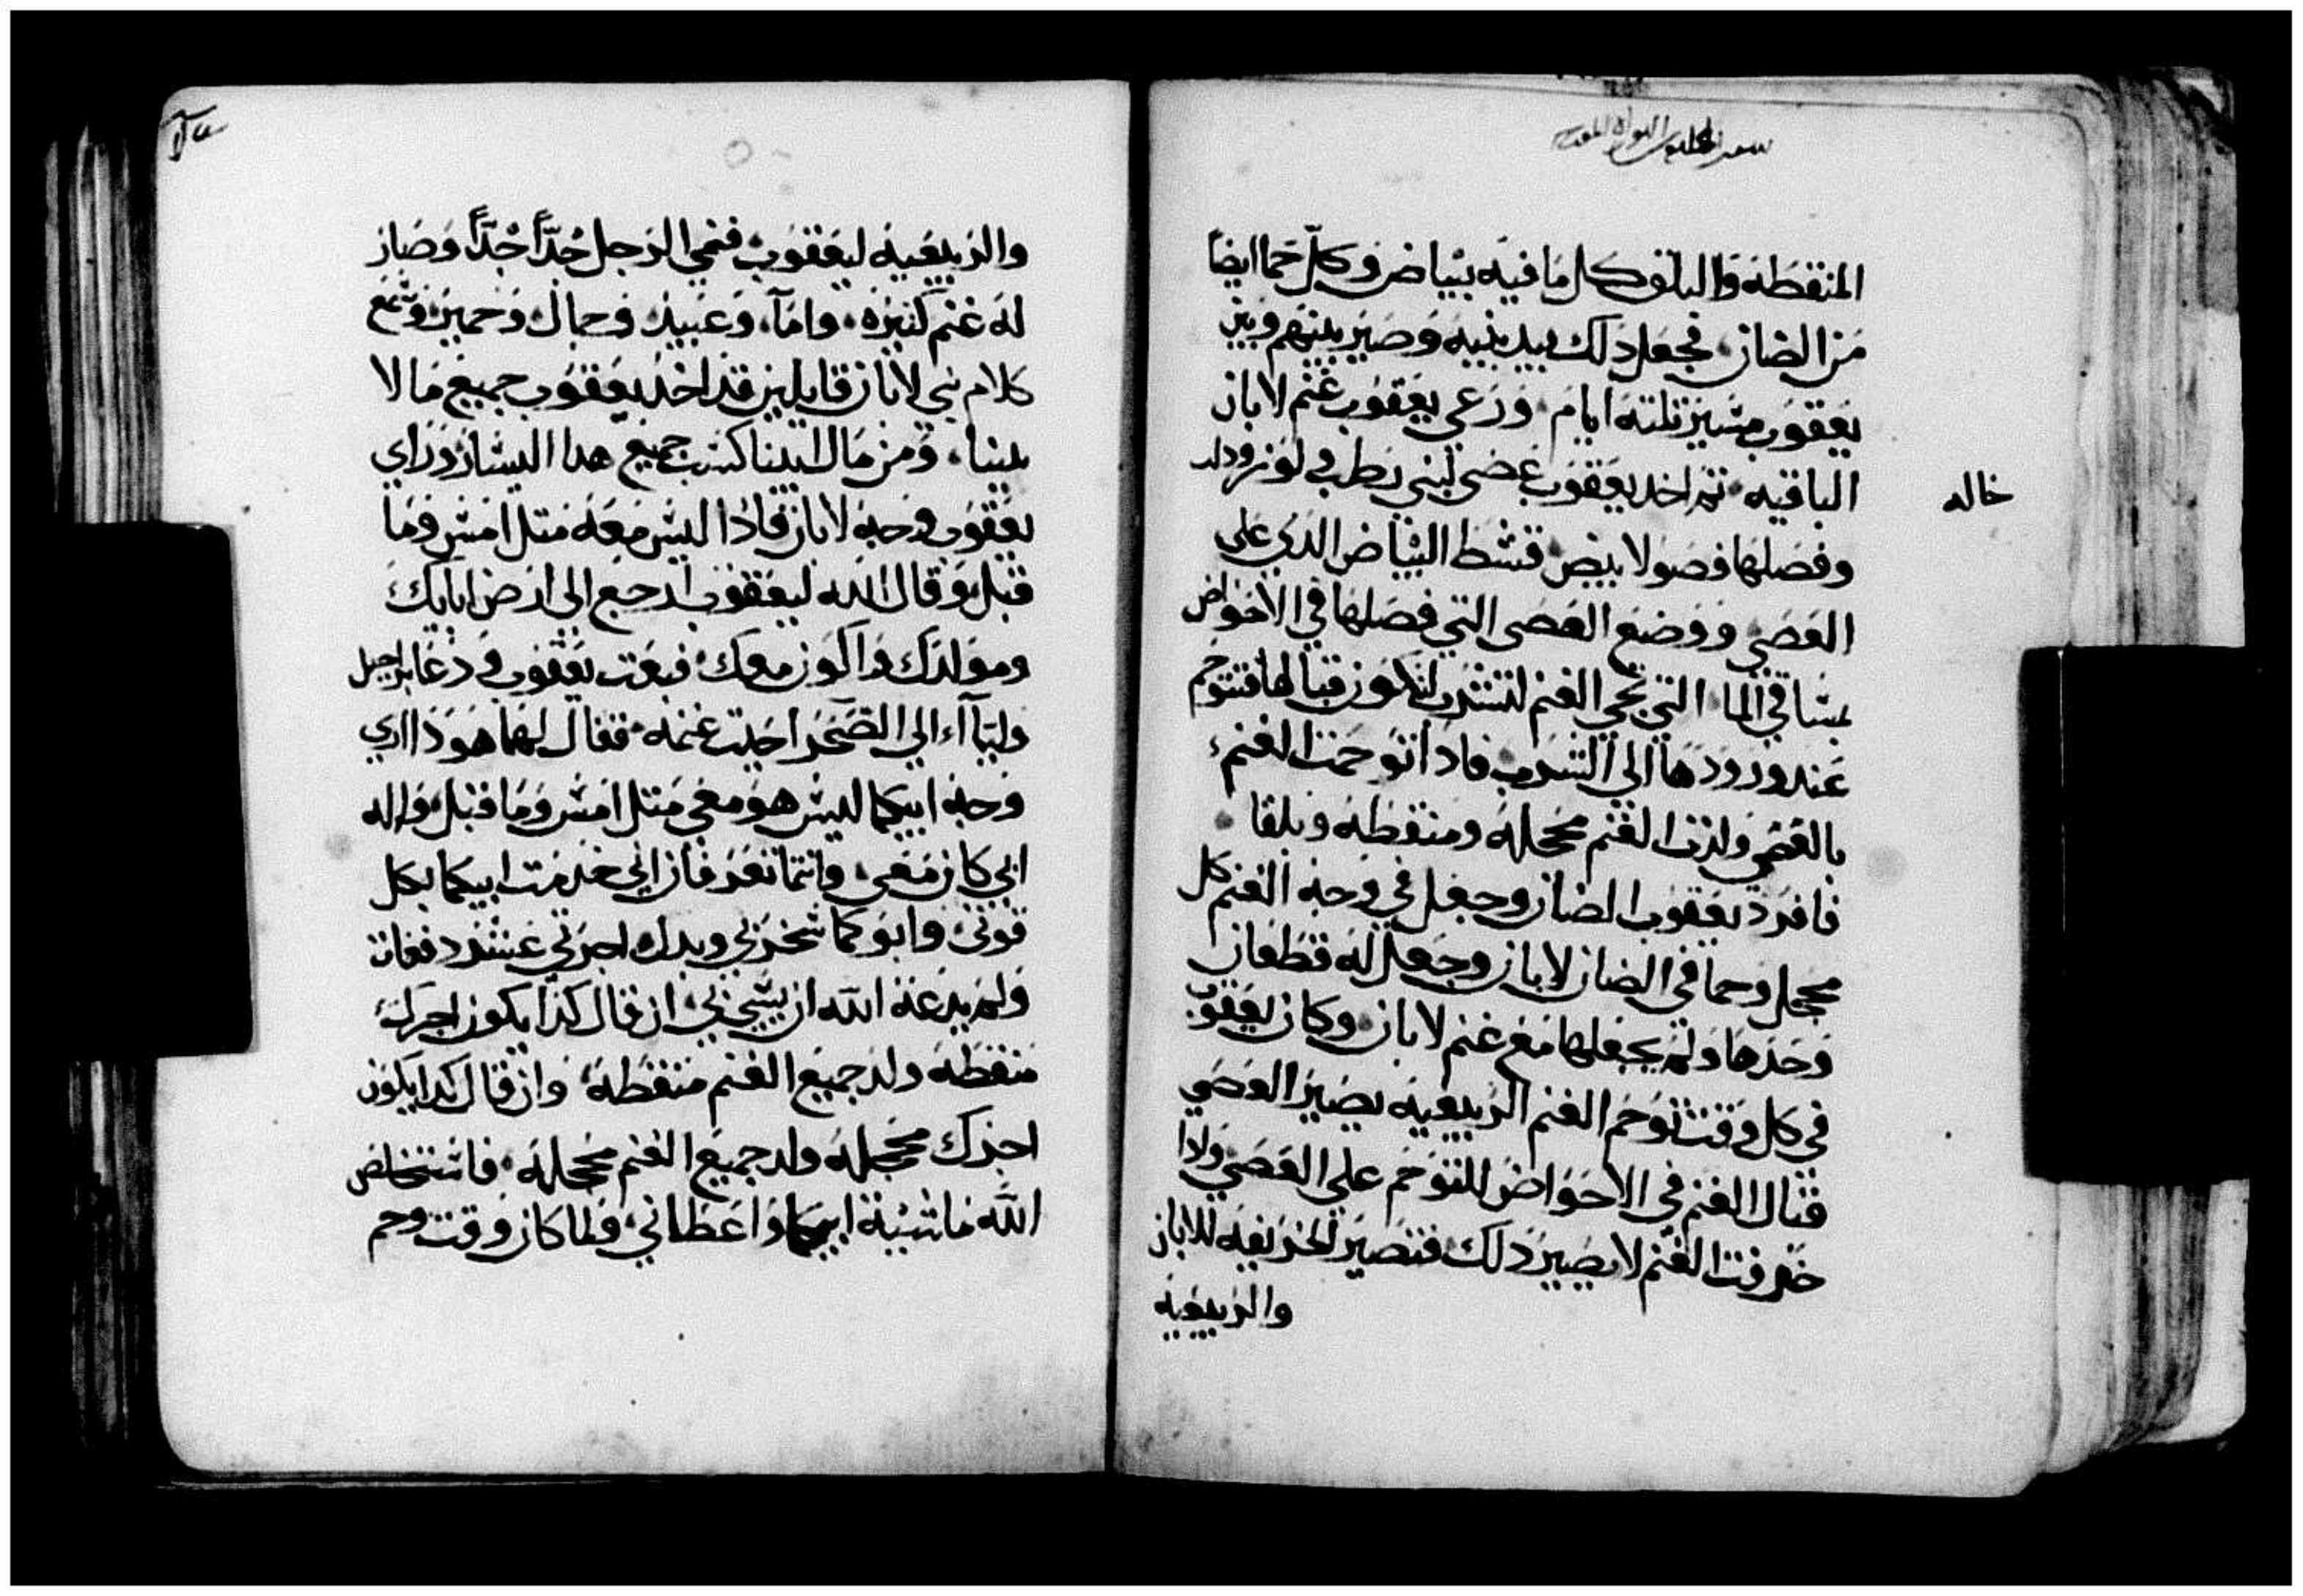 المنقطه والبلق كل ما فيه بياض وكل حما ايضا
من الضان فجعل دلك بيد بنيه وصير بينهم وبين
يعقوب مسير تلته ايام ورعي يعقوب غنم لابان
الباقيه تم اخد يعقوب عصي لبني رطب و لوز ودلب
خاله
وفصلها فصولا بيض قشط البياض الدي علي
العصي ووضع العصي التي فصلها في الاحواض
مساقي الما التي تجي الغنم لتشرب لتكون قبالها فتتوحم
عند ورودها الي الشرب فادا توحمت الغنم
بالعصي ولدت الغنم محجله ومنقطه وبلقا
فافرد يعقوب الضان وجعل في وجه الغنم كل
محجل وحما في الضان لابان وجعل له قطعان
وحدها ولم يجعلها مع غنم لابان وكان يعقوب
في كل وقت توحم الغنم الربيعيه يصير العصي
قبال الغنم في الاحواض للتوحم علي العصي وادا
خرفت الغنم لا يصير دلك فتصير الخريفيه للابان
والربيعيه
والربيعيه ليعقوب فنمي الرجل جدًا جدًا وصار
له غنم كتيره واماء وعبيد وجمال وحمير وسمع
كلام بني لابان قايلين قد اخد يعقوب جميع ما لا
بينا ومن مال ابينا كسب جميع هدا اليسار وراي
يعقوب وجه لابان فادا ليس معه متل امس وما
قبل وقال الله ليعقوب ارجع الى ارض ابايك
ومولدك واكون معك فبعت يعقوب ودعا براحيل
ولياء الي الصحرا حيت غنمه فقال لهما هودا اري
وجه ابيكما ليس هو معي متل امس وما قبل واله
ابي كان معي وانتما تعرفان اني خدمت ابيكما بكل
قوتي وابوكما سخر بي وبدل اجرتي عشر دفعات
ولم يدعه الله ان يسي بي ان قال كدا يكون اجرك
منقطه ولد جميع الغنم منقطه وان قال كدا يكون
اجرك محجله ولد جميع الغنم محجله فاستخلص
الله ماشية ابيكما واعطاني ولما كان وقت وحم